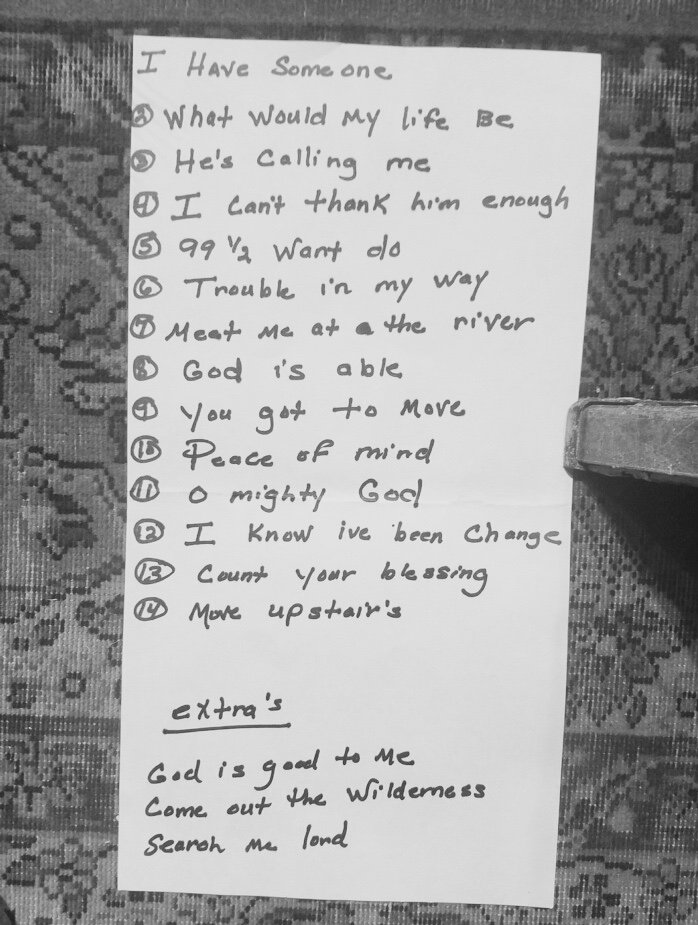 I Have Someone
② What Would My life Be
③ He's Calling me
④ I Can't thank him enough
⑤ 99 ½ Want do
⑥ Trouble in my way
⑦ Meet Me at a the river
⑧ God is able
⑨ You got to Move
⑩ Peace of mind
⑪ O mighty God
⑫ I Know ive been Change
⑬ Count your blessing
⑭ Move upstair's
extra's
God is good to Me
Come out the Wilderness
Search Me lord